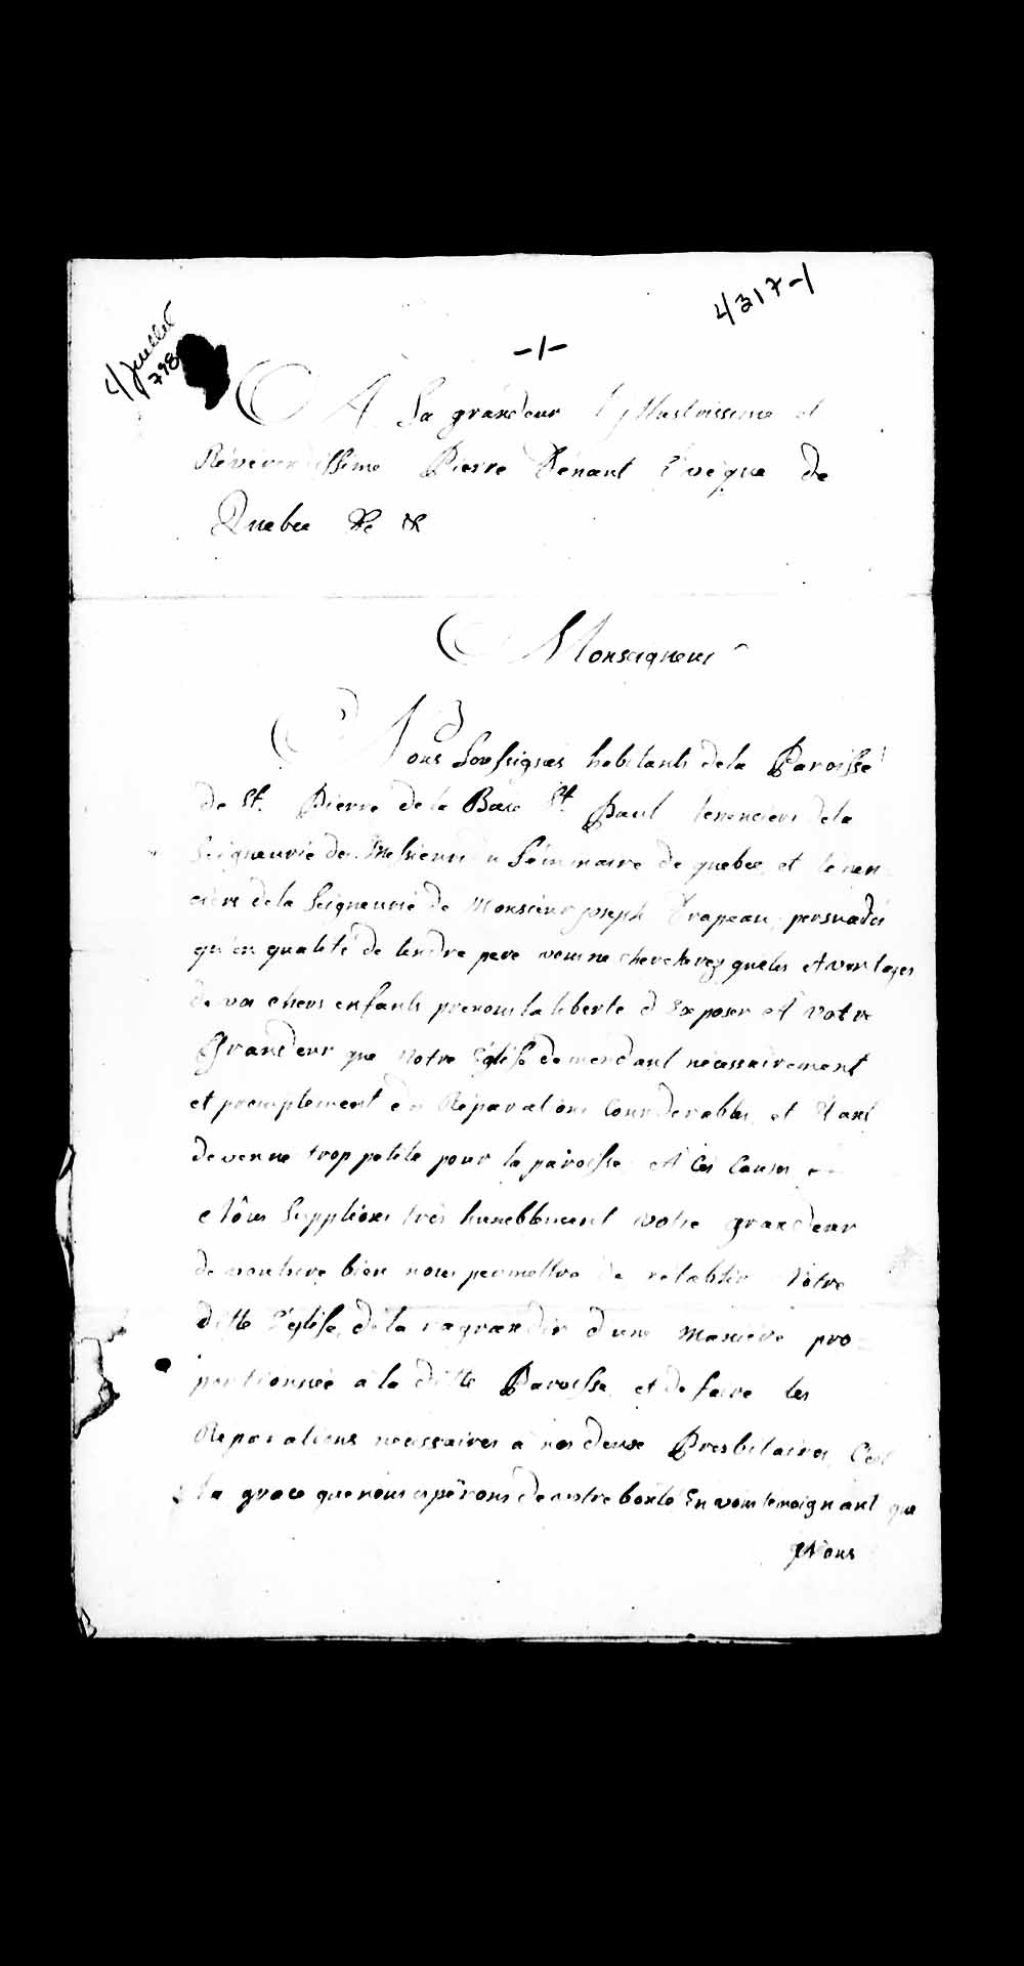 4317-1
4 Juillet
798
-1-
A La grandeur l'Illustrissime et
Révérendissime Pierre Dénaut Evêque de
Quebec &c &c
Monseigneur
Nous Soussignés habitants de la Paroisse
de St. Pierre de la Baie St. Paul tenenciers de la
Seigneurie de Messieurs du Séminaire de quebec, et tenen
ciers de la Seigneurie de Monsieur joseph Drapeau, persuadés
qu'en qualité de tendre pere vous ne chercherez que les Avantages
de vos chers enfants prenons la liberté d'Exposer A Votre
Grandeur que Notre Eglise demendant nécessairement
et promptement des Réparations Considerables, et Etant
devenue trop petite pour la paroisse A Ces Causes
Nôus Supplions très humbblement votre grandeur
de vouloire bien nous permettre de retablir Nôtre
ditte Eglise, de la ragrandir d'une Maniére pro=
portionnée à la ditte Paroisse, et de faire les
Reparations necessaires à nos deux Presbitaires, C'est
la grace que nous espérons de votre bonté En vous temoignant que
Nous